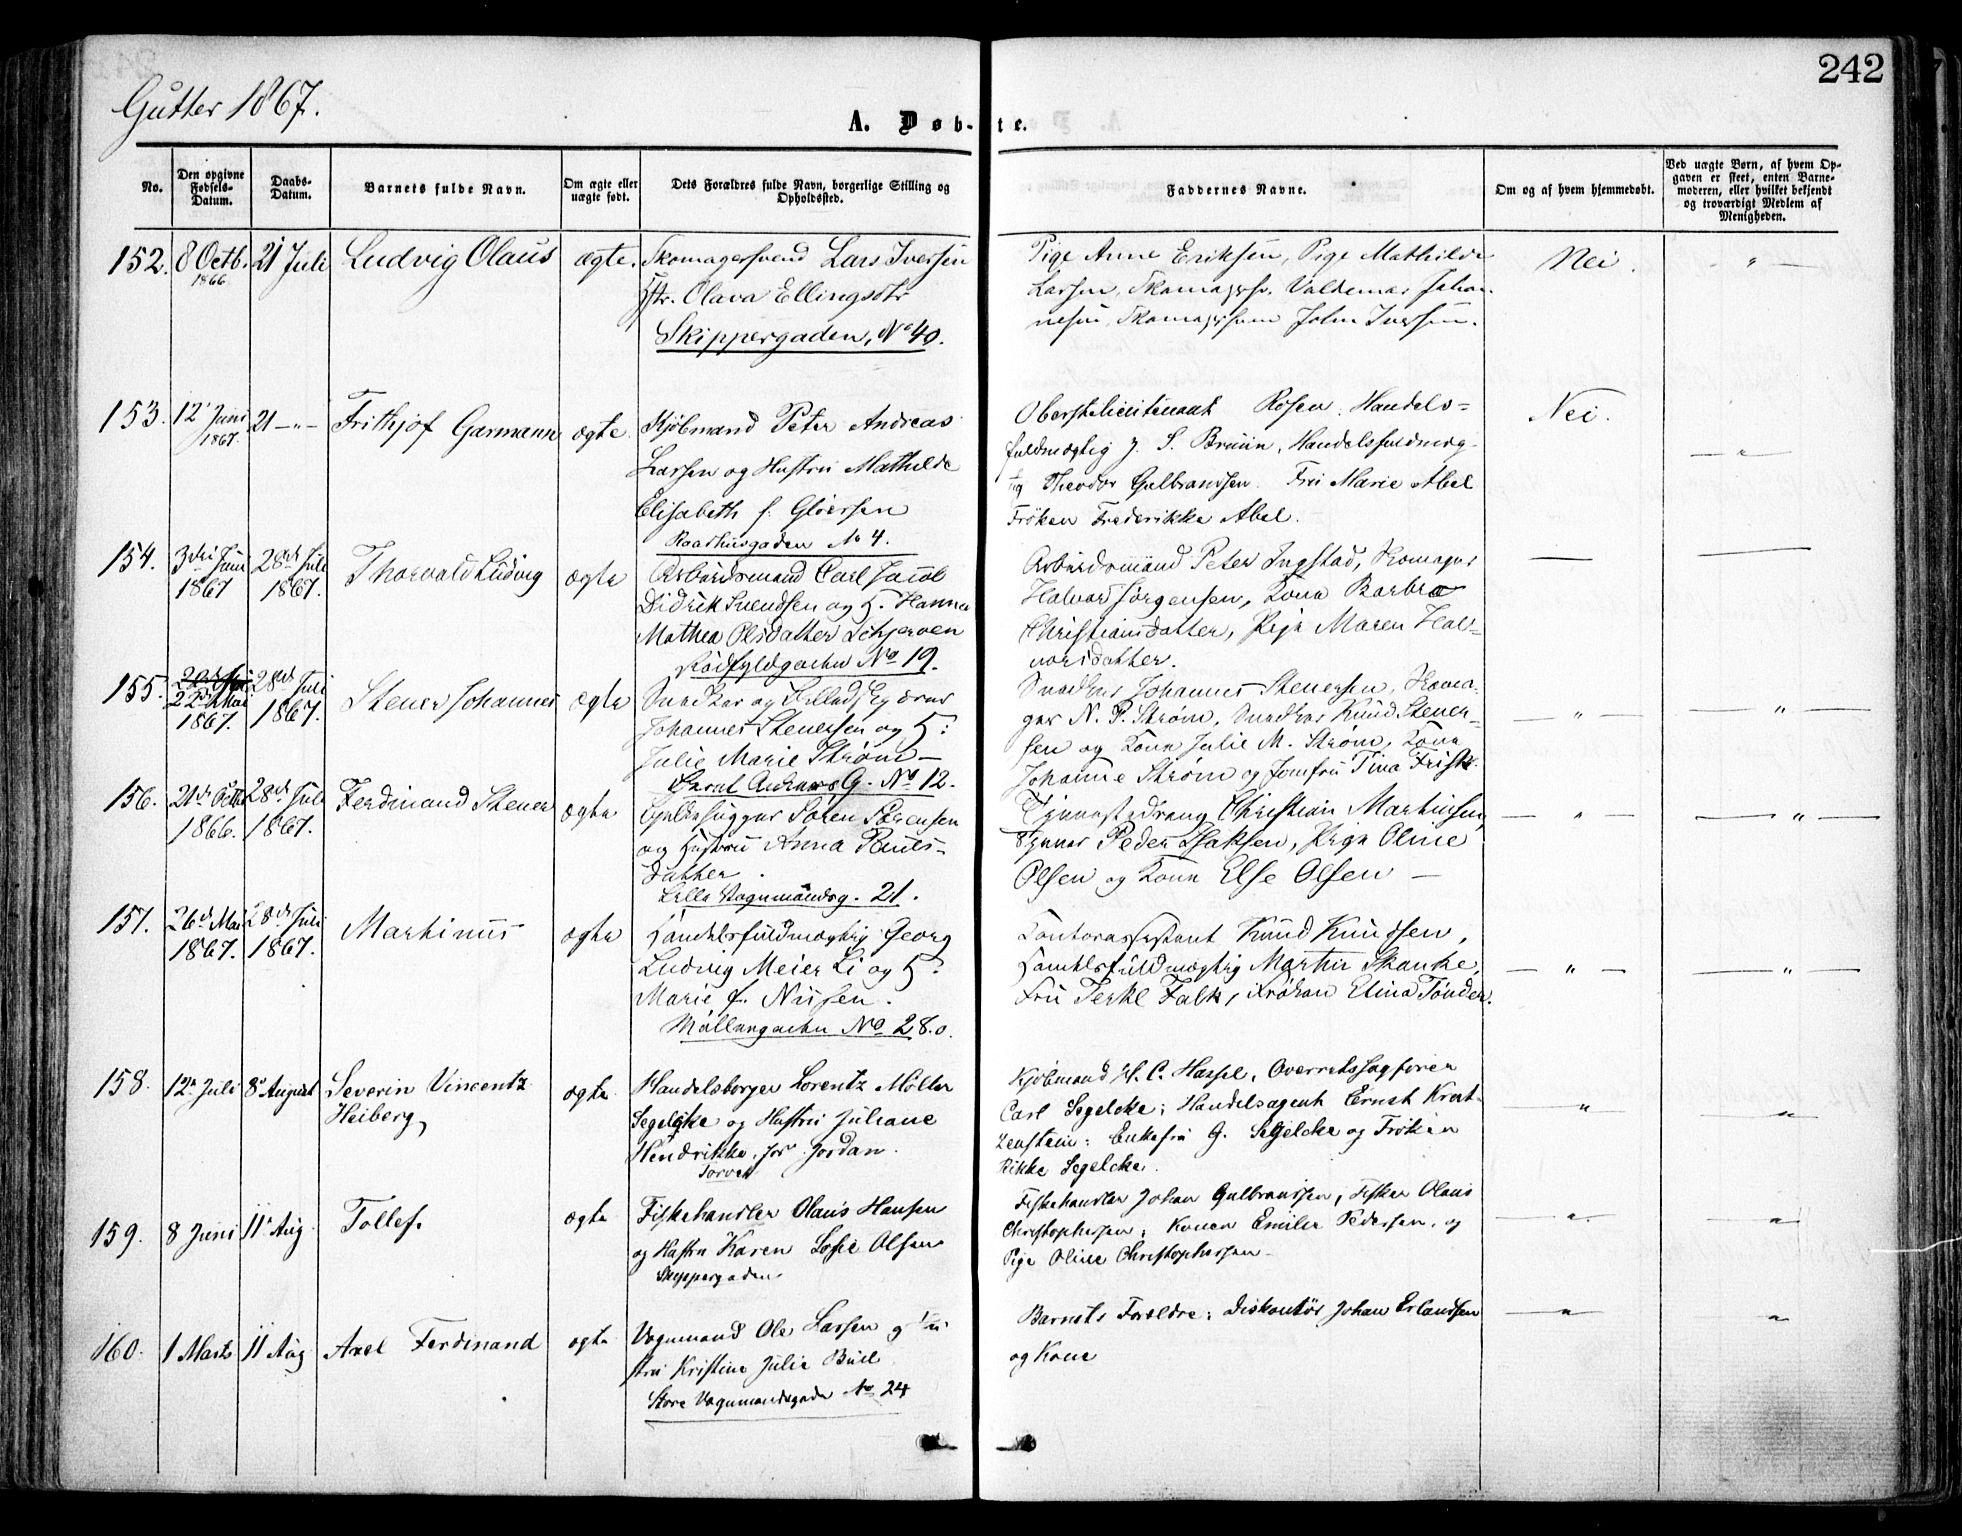 242
Gutter 1867.
A. Døb-te.
No.
Den opgivne Fødsels-Datum.
Daabs-Datum.
Barnets fulde Navn.
Om ægte eller uægte født.
Dets Forældres fulde Navn, borgerlige Stilling og Opholdssted.
Faddernes Navne.
Om og af hvem hjemmedøbt.
Ved uægte Børn, af hvem Opgaven er skeet, enten Barnemoderen, eller hvilket bekjendt og troværdigt Medlem af Menigheden.
152. 8 Octb. 1866 21 Juli Ludvig Olaus ægte.
Skomagersvend Lars Iversen
Hstr. Olava Ellingsdtr
Skippergaden, No 40.
Pige Anne Eriksen, Pige Mathilde
Larsen, Skomagersv. Valdemar Johan-
nesen, Skomagersvend John Iversen.
Nei. "
153. 12 Juni 1867. 21 -"- Frithjof Garmann ægte
Kjöbmand Peter Andreas
Larsen og Hustru Mathilde
Elisabeth f. Gløersen
Raadhusgaden No 4.
Oberstlieutenant Rosen, Handels-
fuldmægtig J. S. Bruun, Handelsfuldmæg-
tig Theodor Gulbrandsen. Fru Marie Abel
Frøken Frederikke Abel.
Nei. - " -
154. 3die Juni 1867 28de Juli 1867. Thorvald Ludvig ægte
Arbeidsmand Carl Jacob
Didrik Svendsen og H. Hanna
Mathea Olsdatter Schjerven
Rødfyldgaden No 19.
Arbeidsmand Peter Ingstad, Skomager
Halvor Jørgensen, Kone Barbra
Christiansdatter, Pige Maren Hal-
vorsdatter.
155. 22de Mai 1867. 28de Juli 1867. Stener Johannes ægte
Snedker og Johannes Stenersen og H:
Julie Marie Strøm -
G. No 12.
Snedker Johannes Stenersen, Skoma-
ger N. P. Strøm, Snedker Knud Stener-
sen og Kone Julie M. Strøm, Kone
Johanne Strøm og Jomfru Tina Frisk.
- " - - " -
156. 21de Octb 1866. 28de Juli 1867. Ferdinand Stener ægte
Søren Sørensen
og Hustru Anna Pauls-
datter.
Lille Vognmandsg. 21.
Tjenestedreng Christian Martinsen,
Peder Isaksen, Pige Oline
Olsen og Kone Else Olsen -
- " - - " -
157. 26de Mai 1867. 28de Juli 1867. Martinus ægte
Handelsfuldmægtig Georg
Ludvig Meier Li og H:
Marie f. Nissen.
Møllergaden No 28.
Kontorassistent Knud Knudsen,
Handelsfuldmægtig Martin Skanke,
Fru Falk, Frøken Elina Tønder.
- " - - " -
158. 12 Juli 8 August Severin Vincentz
Heiberg ægte
Handelsborger Lorentz Möller
Segelcke og Hustru Juliane
Hendrikke, f. Jordan.
Torvet
Kjöbmand H. C. Hassel, Overretssagfører
Carl Segelcke; Handelsagent Ernst Krat-
zenstein; Enkefru G. Segelcke og Frøken
Rikke Segelcke.
" "
159. 8 Juni 11 Aug Tollef. ægte
Fiskehandler Olaus Hansen
og Hustru Karen Sofie Olsen
Skippergaden
Fiskehandler Johan Gulbranssen, Fisker Olaus
Christophersen; Konen Emilie Pedersen, og
Pige Oline Christophersen -
- " - "
160. 1 Marts 11 Aug Axel Ferdinand ægte
Vognmand Ole Larsen og Hu-
stru Kristine Julie Buel
Store Vognmandsgade No 24
Barnets Forældre; Diskontör Johan Erlandsen
og Kone
- " - "